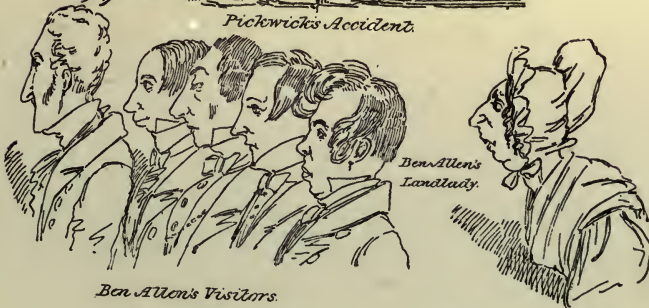 Pickwick's Accident.
Ben Allen's
Landlady.
Ben Allen's Visitors.